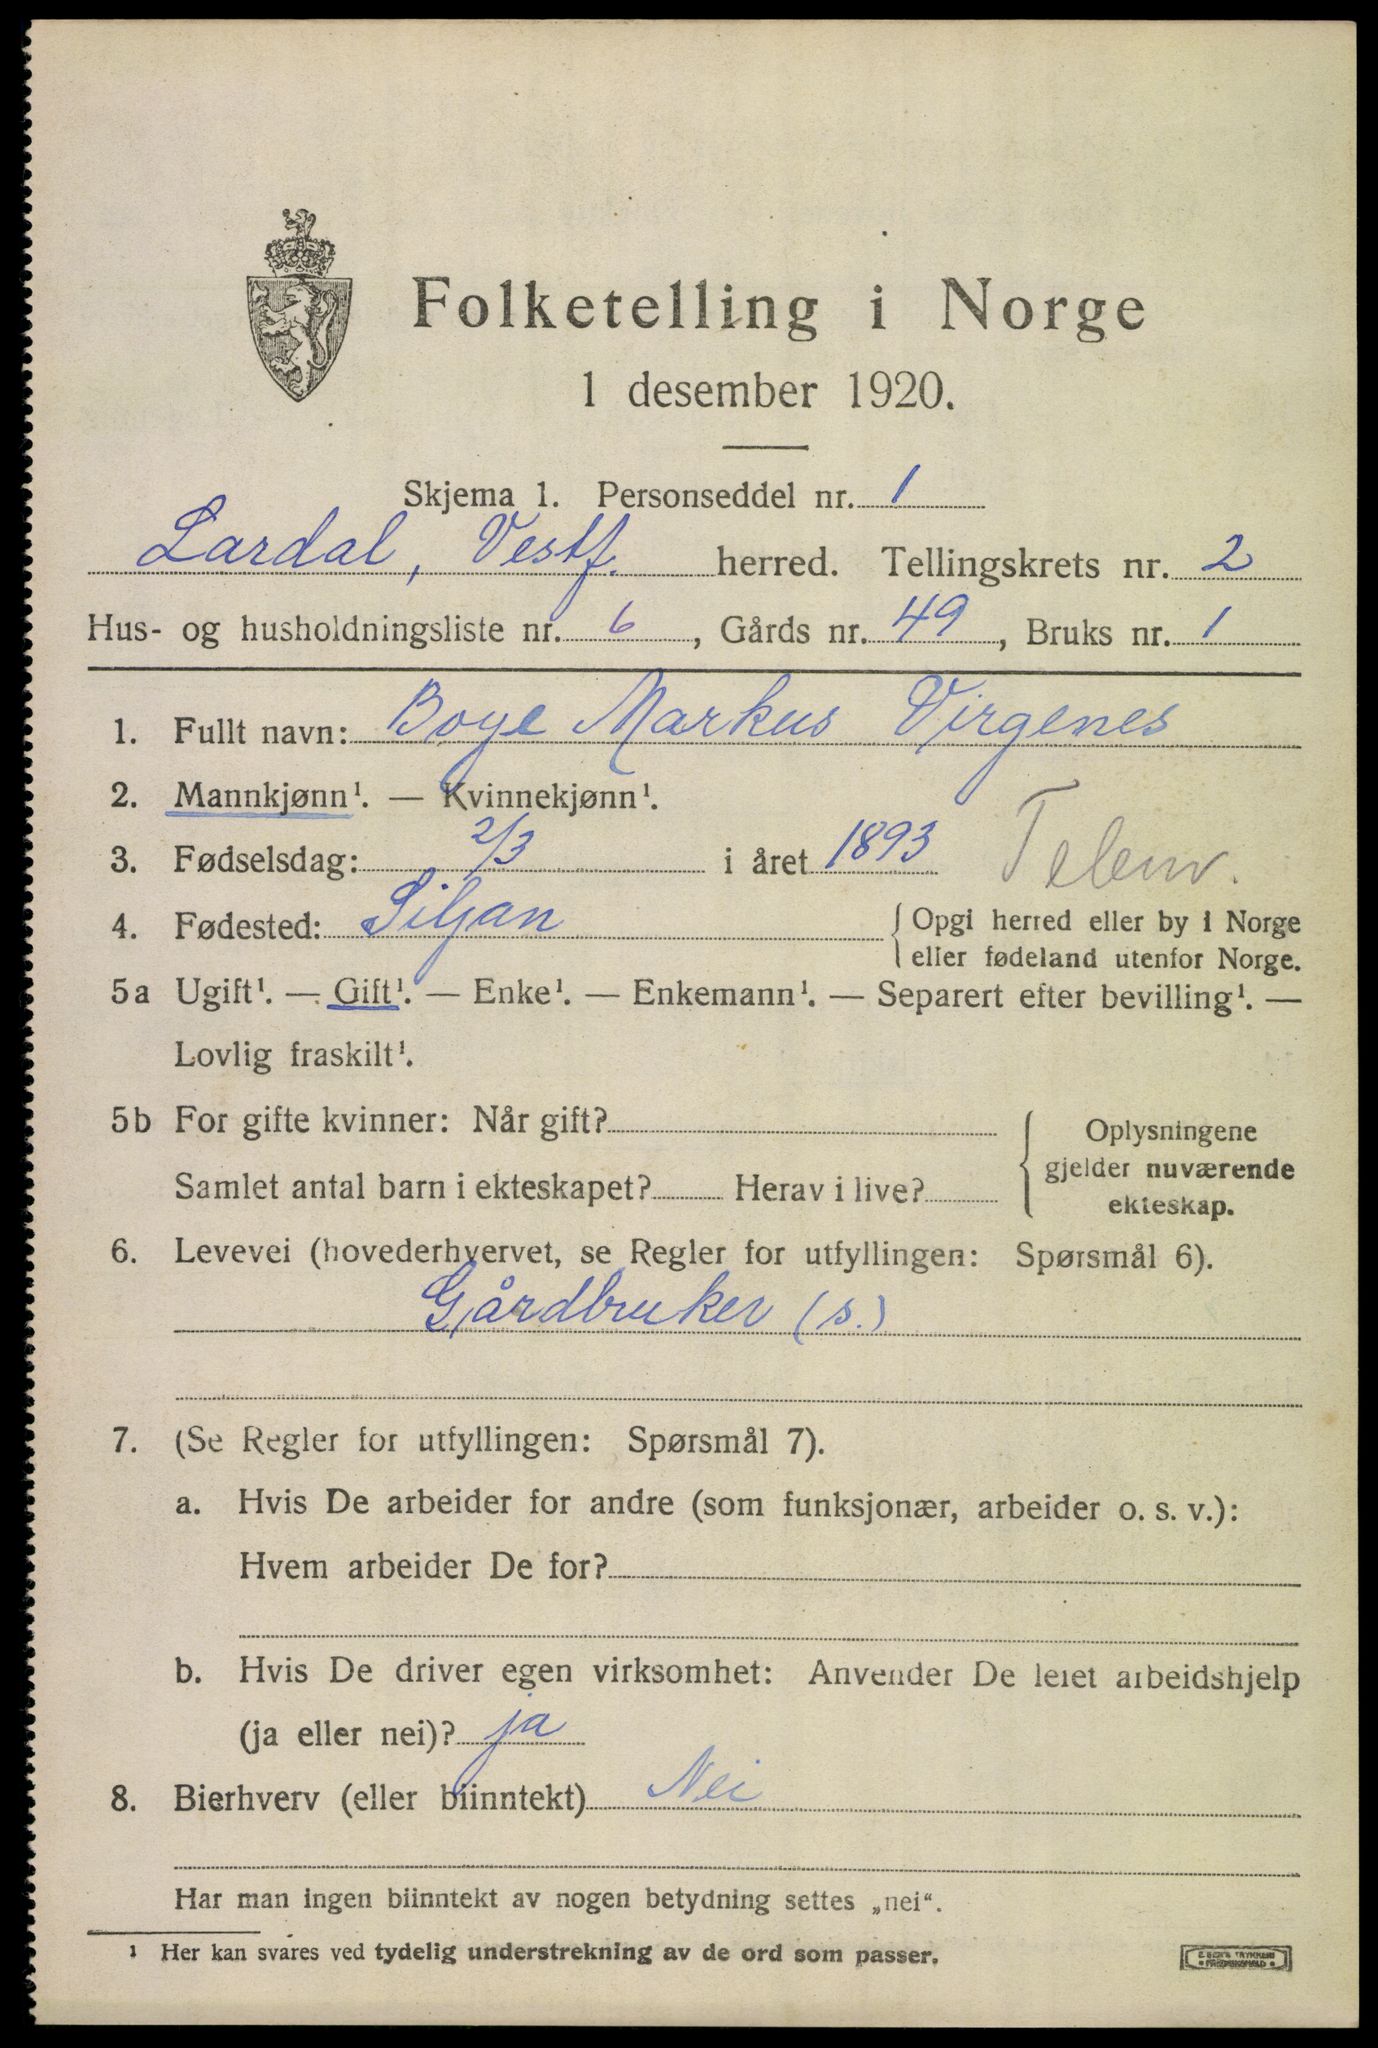 Folketelling i Norge
1 desember 1920.
Skjema 1. Personseddel nr. 1
Lardal, Vestf. herred. Tellingskrets nr. 2
Hus- og husholdningsliste nr. 6, Gårds nr. 49, Bruks nr. 1
1. Fullt navn: Boye Markus Virgenes
2. Mannkjønn¹. — Kvinnekjønn¹.
3. Fødselsdag: 2/3 i året 1893 Telem.
4. Fødested: Siljan { Opgi herred eller by i Norge
eller fødeland utenfor Norge.
5a Ugift¹. — Gift¹. — Enke¹. — Enkemann¹. — Separert efter bevilling¹. —
Lovlig fraskilt¹.
5b For gifte kvinner: Når gift? { Oplysningene
gjelder nuværende
ekteskap.
Samlet antal barn i ekteskapet? Herav i live?
6. Levevei (hovederhvervet, se Regler for utfyllingen: Spørsmål 6).
Gårdbruker (s.)
7. (Se Regler for utfyllingen: Spørsmål 7).
a. Hvis De arbeider for andre (som funksjonær, arbeider o. s. v.):
Hvem arbeider De for?
b. Hvis De driver egen virksomhet: Anvender De leiet arbeidshjelp
(ja eller nei)? ja
8. Bierhverv (eller biinntekt) Nei
Har man ingen biinntekt av nogen betydning settes „nei“.
¹ Her kan svares ved tydelig understrekning av de ord som passer.